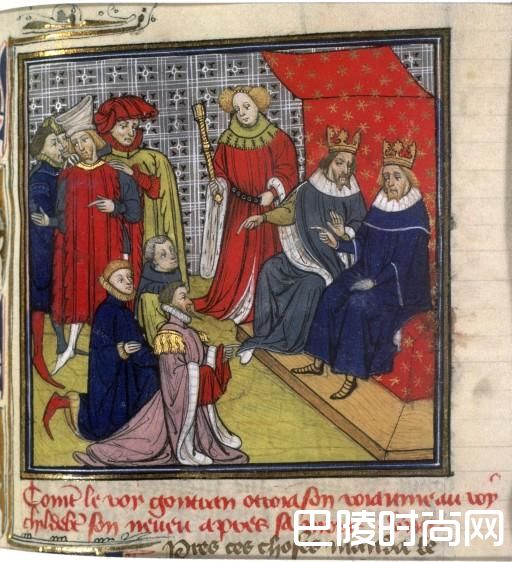 Comt le roy gontran ottroia son roiaume au roy
childebt son neveu apres sa
Pres ces choses manda le
巴陵时尚网